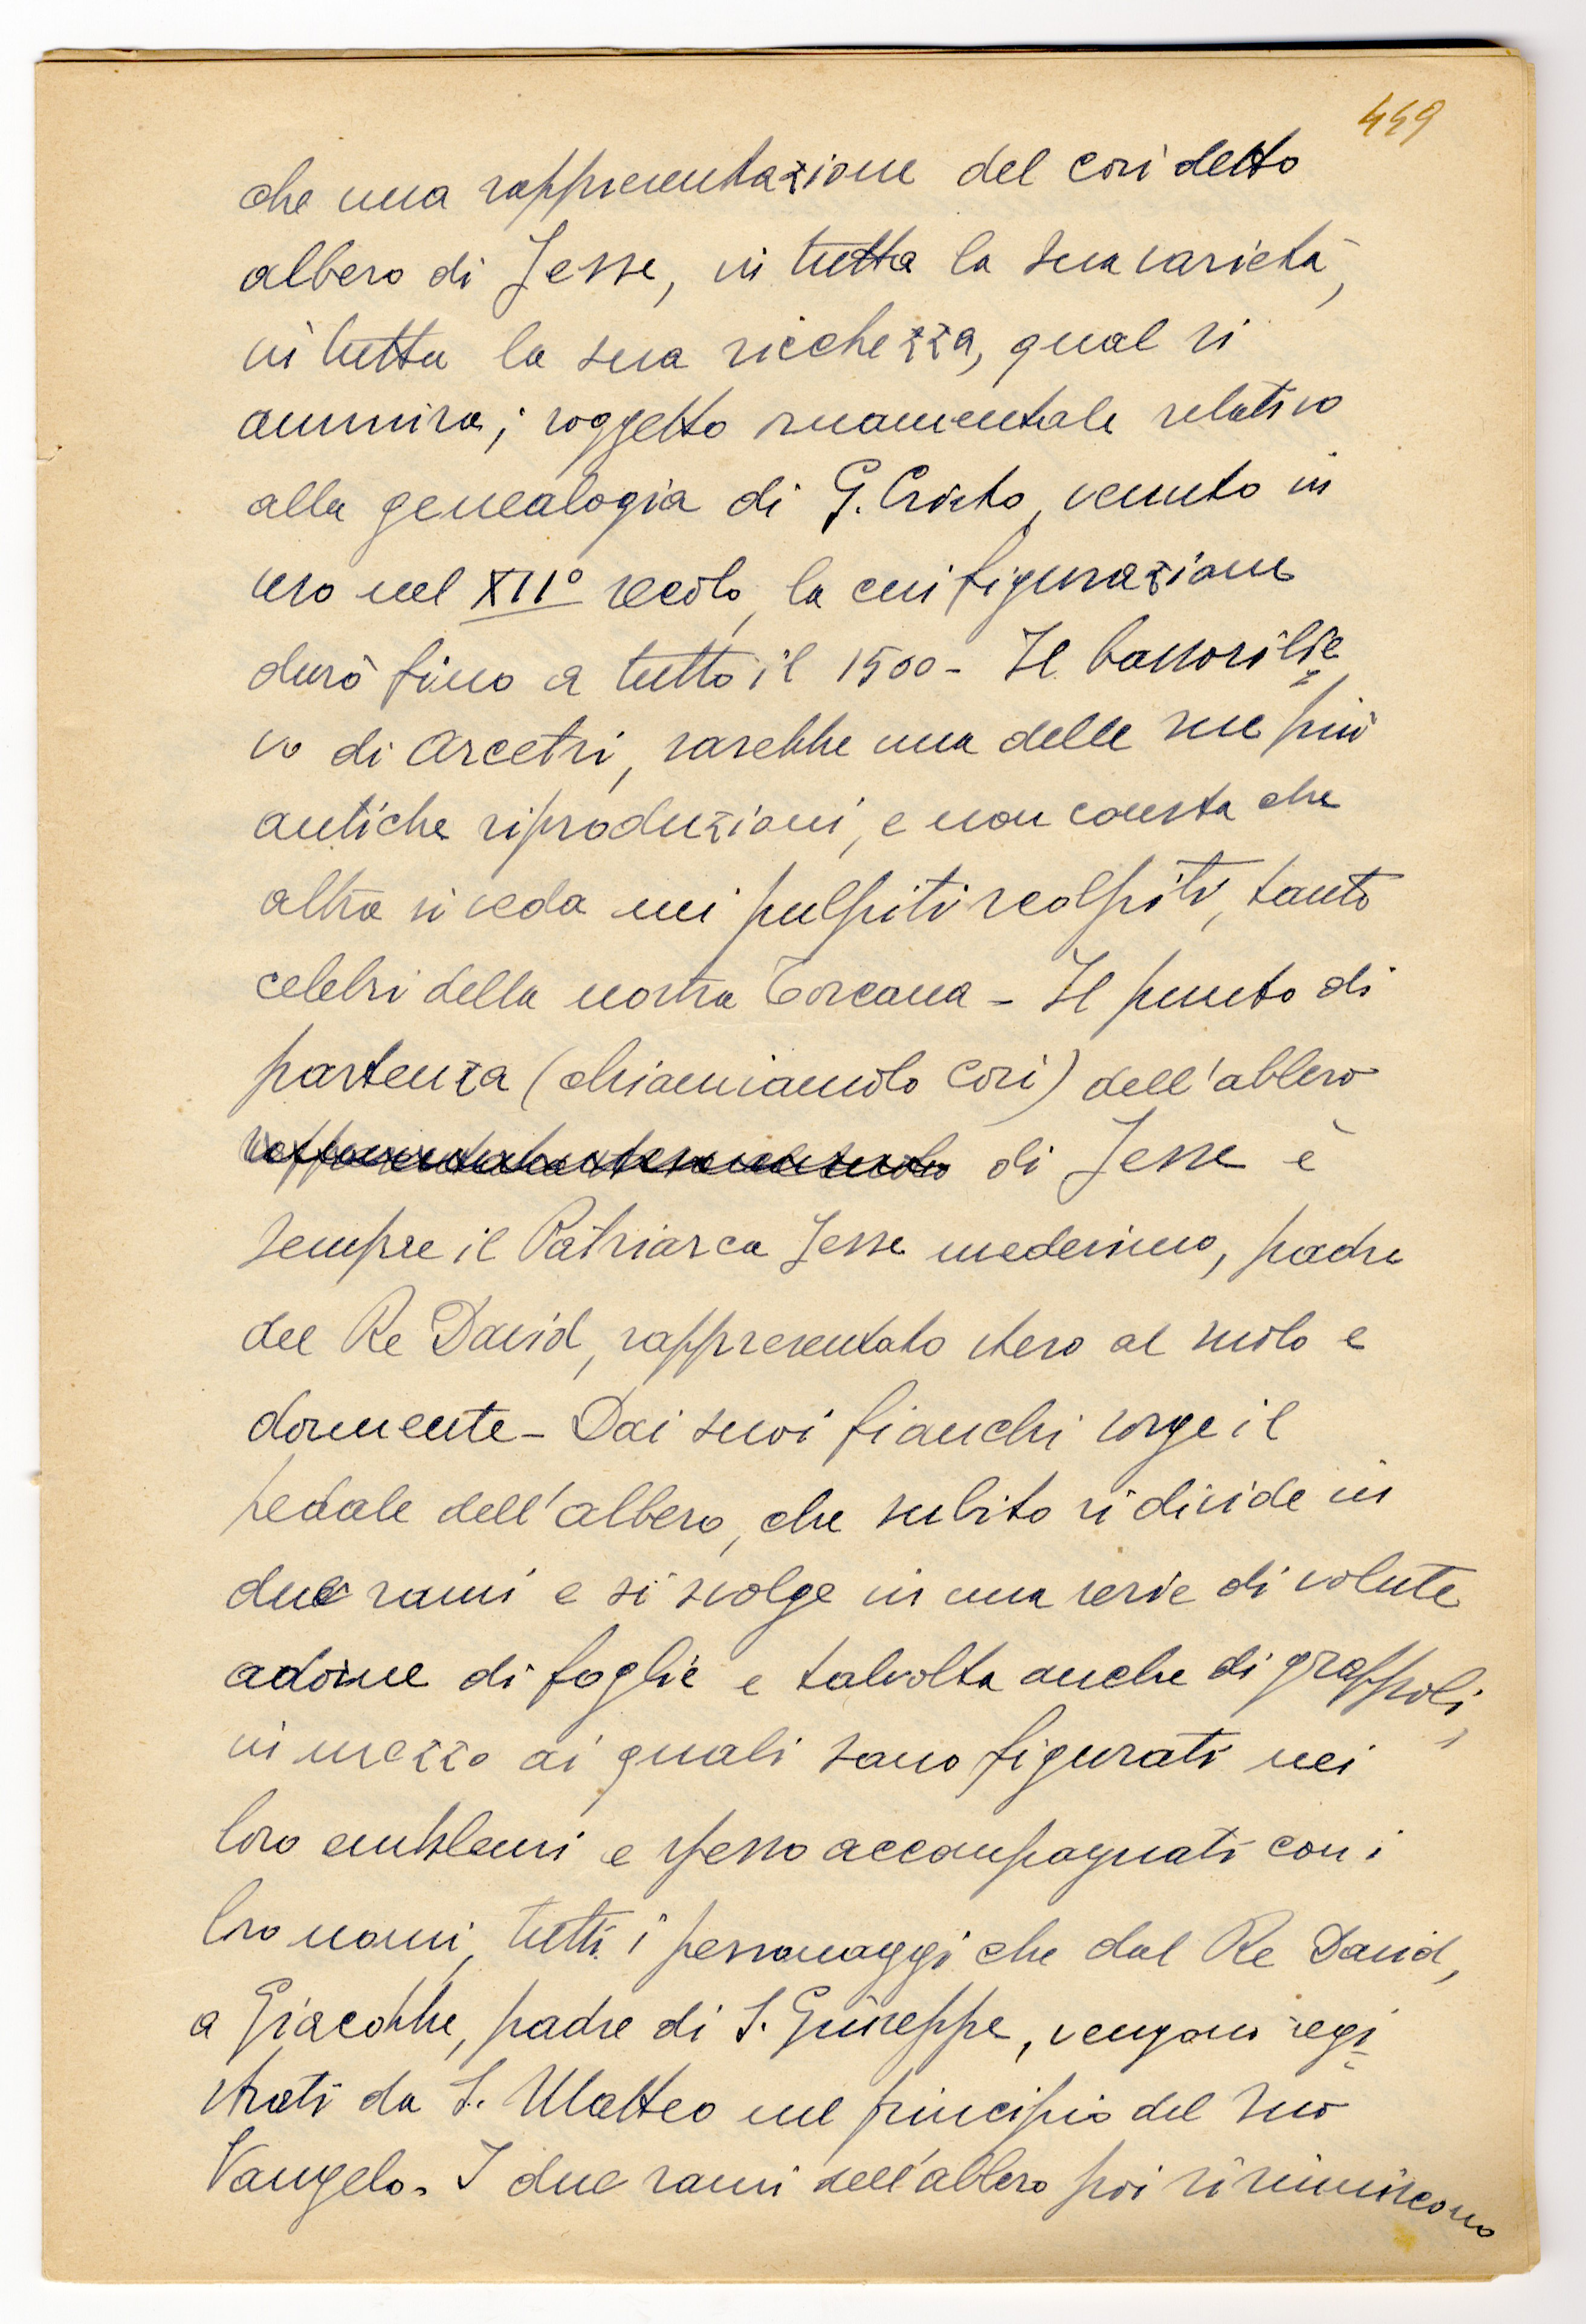 449
che una rappresentazione del così detto
albero di Jesse, in tutta la sua varietà,
in tutta la sua ricchezza, qual si
ammira; soggetto ornamentale relativo
alla genealogia di G. Cristo, venuto in
uso nel XII° secolo, la cui figurazione
durò fino a tutto il 1500 - Il bassorilie
vo di Arcetri, sarebbe una delle sue più
antiche riproduzioni, e non consta che
altra si veda nei pulpiti scolpiti, tanto
celebri della nostra Toscana - Il punto di
partenza (chiamiamolo così) dell'albero
di Jesse è
sempre il Patriarca Jesse medesimo, padre
del Re David, rappresentato steso al suolo e
dormente - Dai suoi fianchi sorge il
pedale dell'albero, che subito si divide in
due rami e si svolge in una serie di volute
adorne di foglie e talvolta anche di grappoli,
in mezzo ai quali sono figurati nei
loro emblemi e spesso accompagnati con i
loro nomi, tutti i personaggi che dal Re David,
a Giacobbe, padre di S. Giuseppe, vengono regi
strati da S. Matteo nel principio del suo
Vangelo. I due rami dell'albero poi si riuniscono